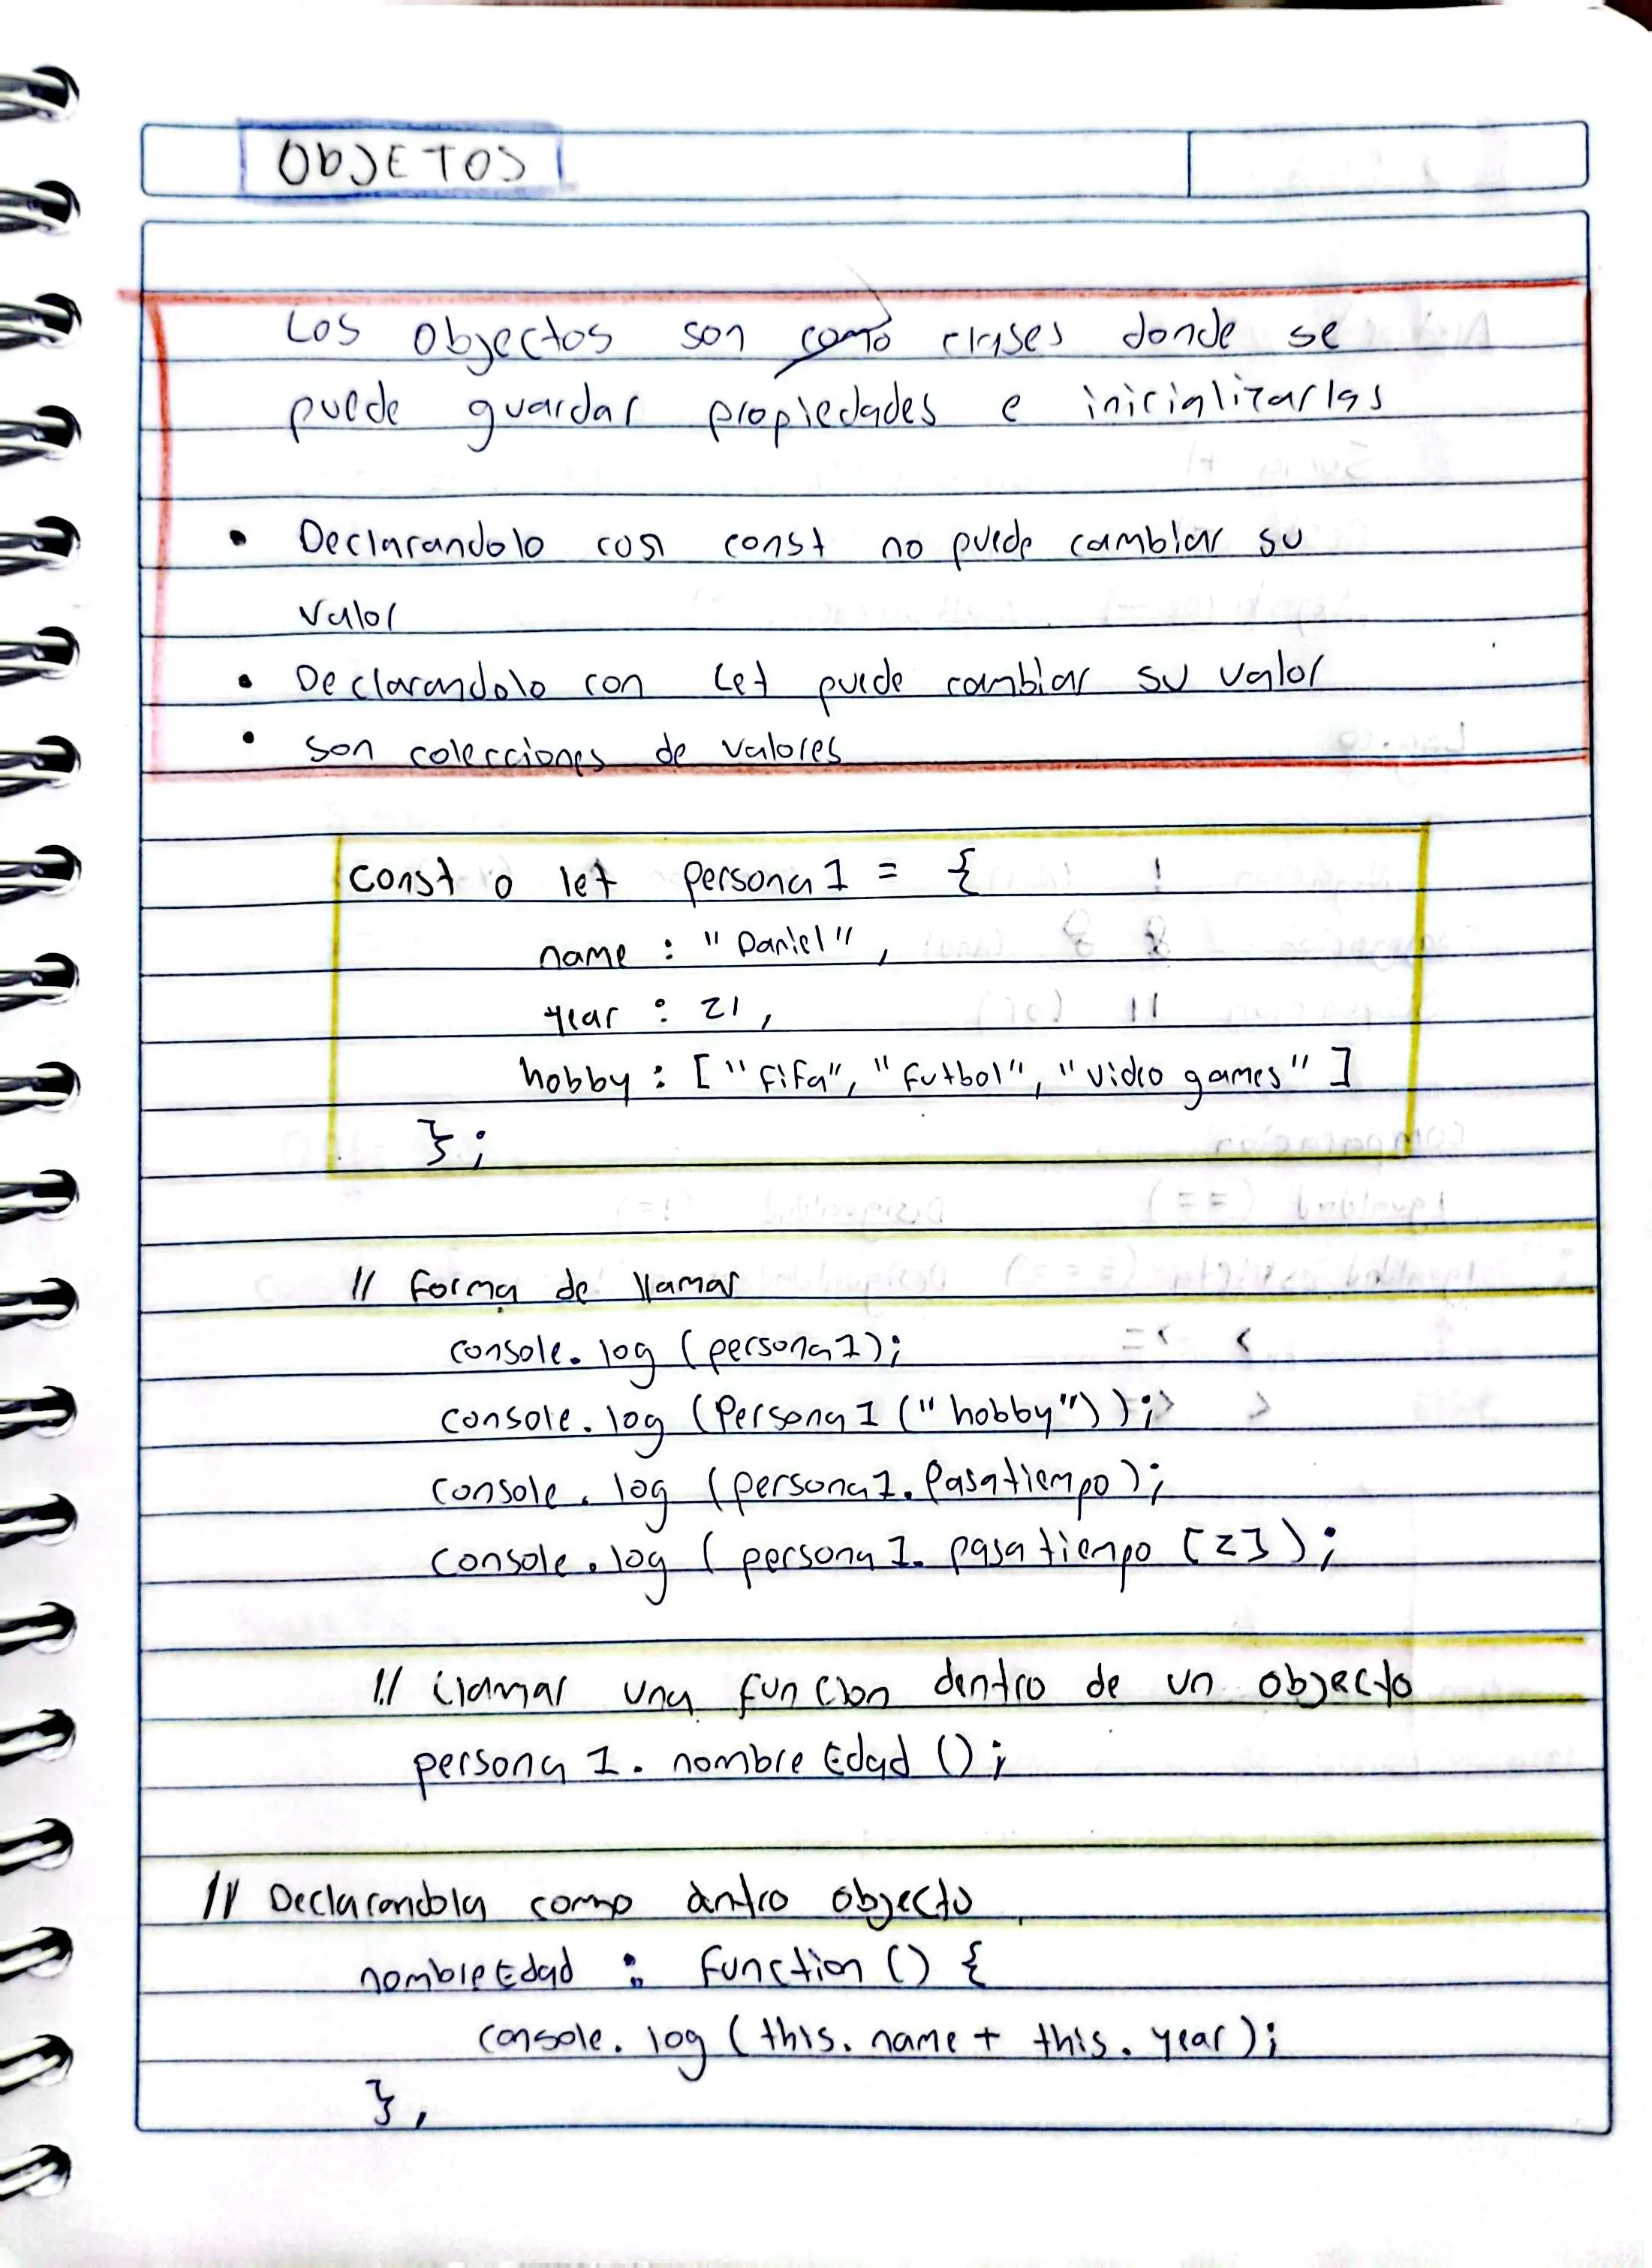 ObJETOS
Los Objectos son como clases donde se
puede guardar propiedades e inicializarlas
• Declarandolo con const no puede cambiar su
valor
• Declarandolo con Let puede cambiar su valor
• son colecciones de valores
const o let persona1 = {
name : "Daniel",
year : 21,
hobby : ["fifa", "futbol", "video games"]
};
// forma de llamar
console.log (persona1);
console.log (Persona1 ("hobby"));
console.log (persona1.Pasatiempo);
console.log (persona1.pasatiempo [2]);
// Llamar una funcion dentro de un objecto
persona1.nombreEdad ();
// Declarandola como dentro objecto
nombreEdad : function () {
console.log (this.name + this.year);
},